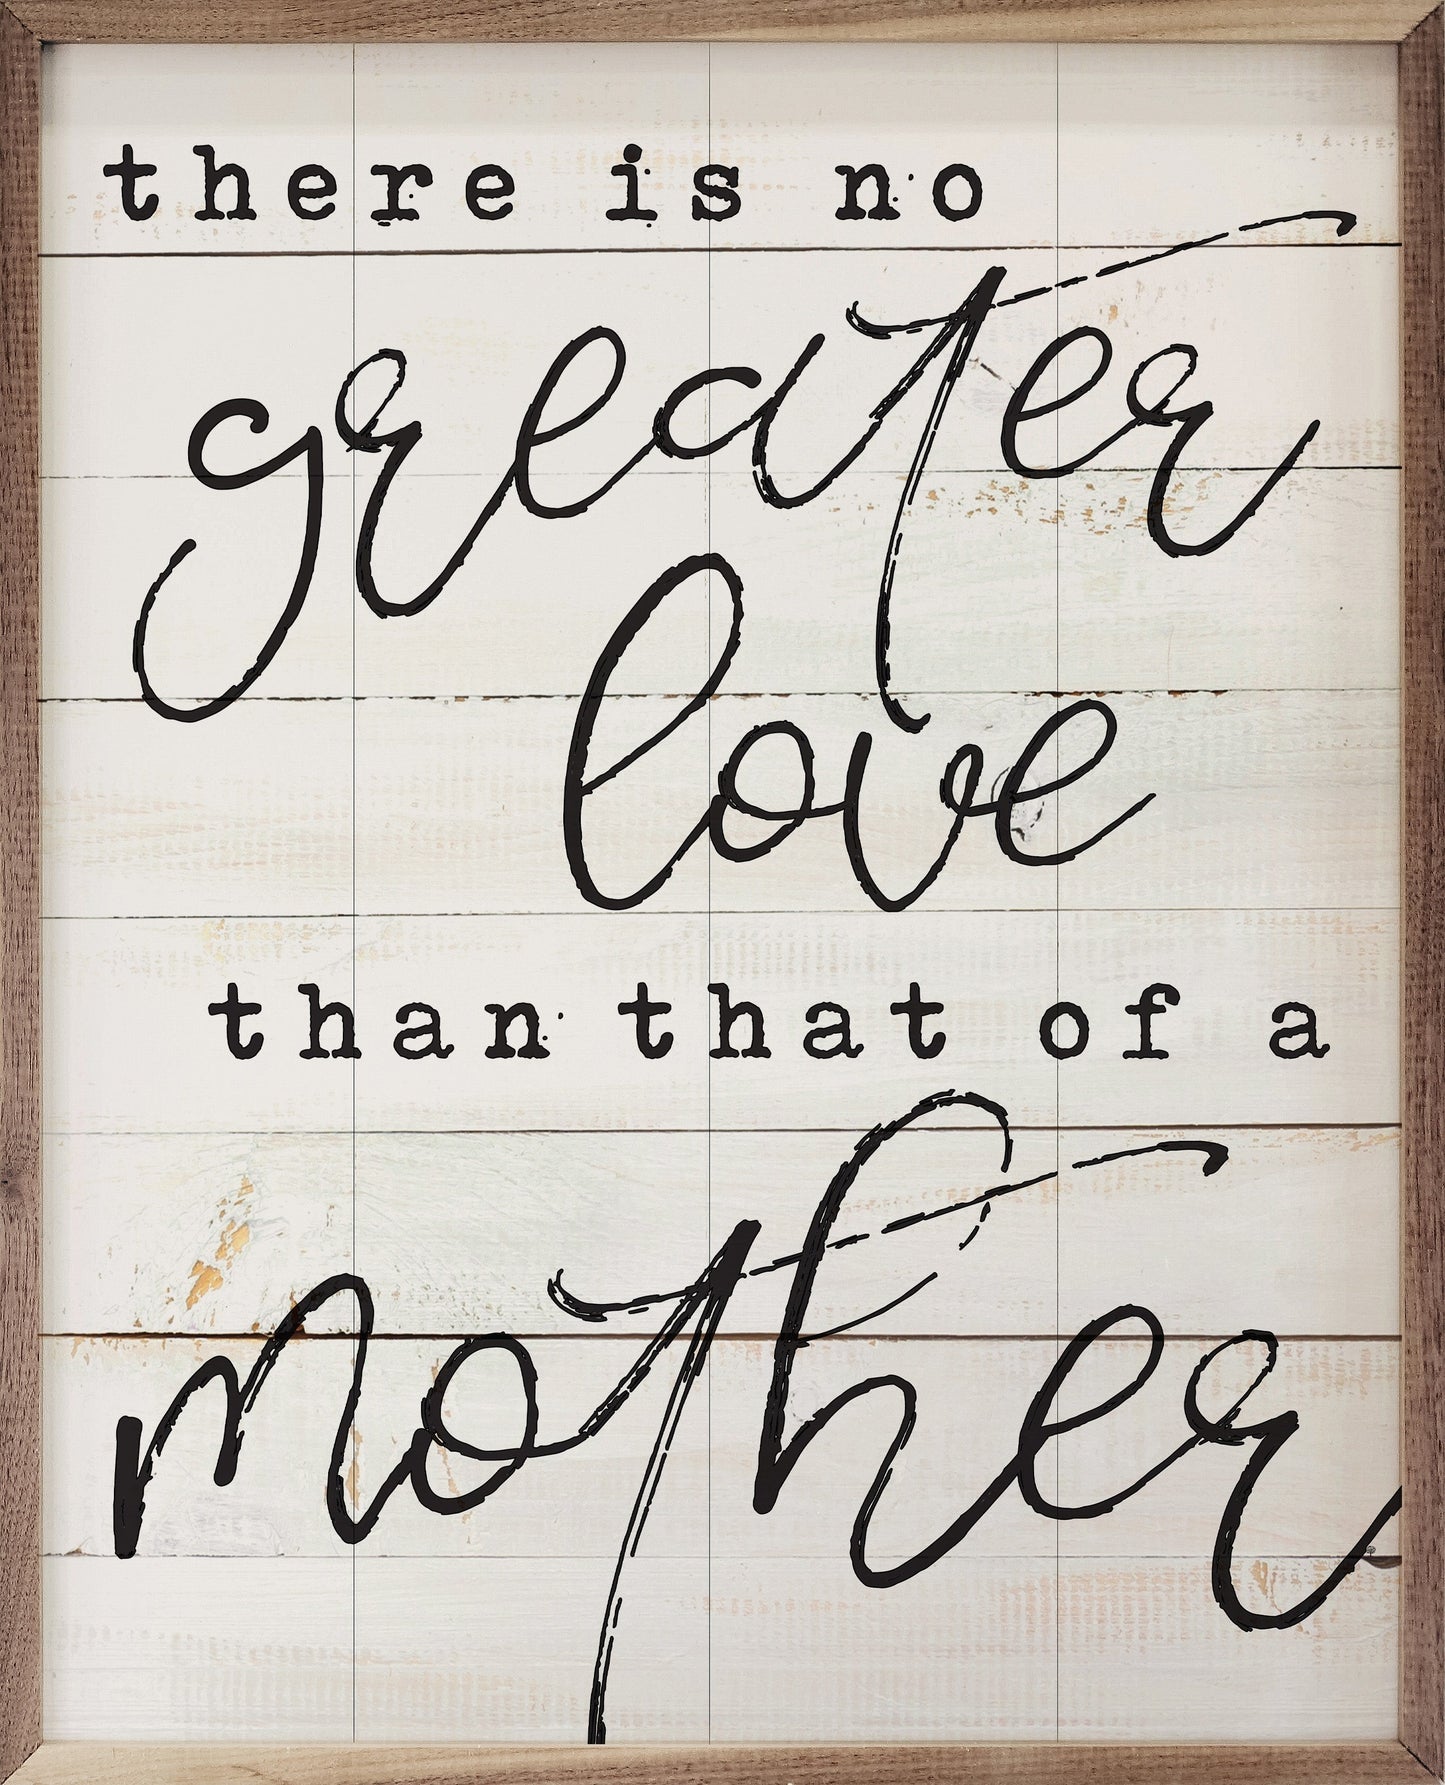 there is no
greater
love
than that of a
mother